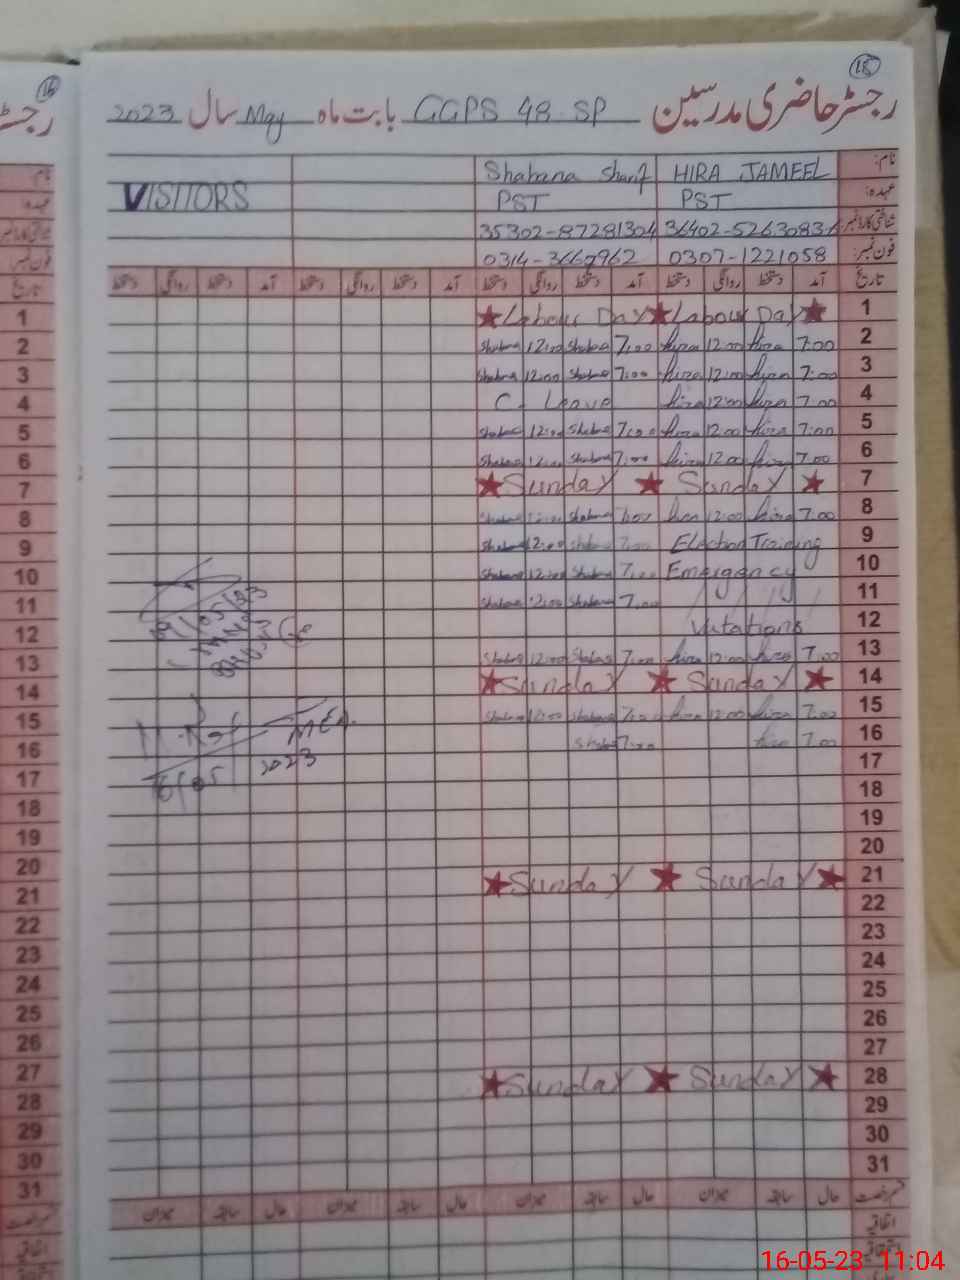 15
16
رجسٹر حاضری مدرسین GGPS 48 SP بابت ماہ May سال 2023
نام: HIRA JAMEEL Shabana Sharif
عہدہ: PST PST VISITORS
شناختی کارڈ نمبر 35302-87281304
فون نمبر: 0307-1221058 0314-3667962
تاریخ آمد دستخط روانگی دستخط آمد دستخط روانگی دستخط آمد دستخط روانگی دستخط آمد دستخط روانگی دستخط
1 ★ Labour Day ★ Labour Day ★ 1
2 Shabana 12:00 Shabana 7:00 hira 12:00 hira 7:00 2
3 Shabana 12:00 Shabana 7:00 hira 12:00 hira 7:00 3
4 C. Leave hira 12:00 hira 7:00 4
5 Shabana 12:00 Shabana 7:00 hira 12:00 hira 7:00 5
6 Shabana 12:00 Shabana 7:00 hira 12:00 hira 7:00 6
7 ★ Sunday ★ Sunday ★ 7
8 Shabana 12:00 Shabana 7:00 hira 12:00 hira 7:00 8
9 Shabana 12:00 Shabana 7:00 Election Training 9
10 Shabana 12:00 Shabana 7:00 Emergency 10
11 Shabana 12:00 Shabana 7:00 11
12 Vacations 12
13 Shabana 12:00 Shabana 7:00 hira 12:00 hira 7:00 13
14 ★ Sunday ★ Sunday ★ 14
15 Shabana 12:00 Shabana 7:00 hira 12:00 hira 7:00 15
16 MEA Shabana 7:00 hira 7:00 16
17 16/05/2023 17
18 18
19 19
20 20
21 ★ Sunday ★ Sunday ★ 21
22 22
23 23
24 24
25 25
26 26
27 27
28 ★ Sunday ★ Sunday ★ 28
29 29
30 30
31 31
حال سابقہ میزان حال سابقہ میزان حال سابقہ میزان حال سابقہ میزان
اتفاقیہ
16-05-23 11:04